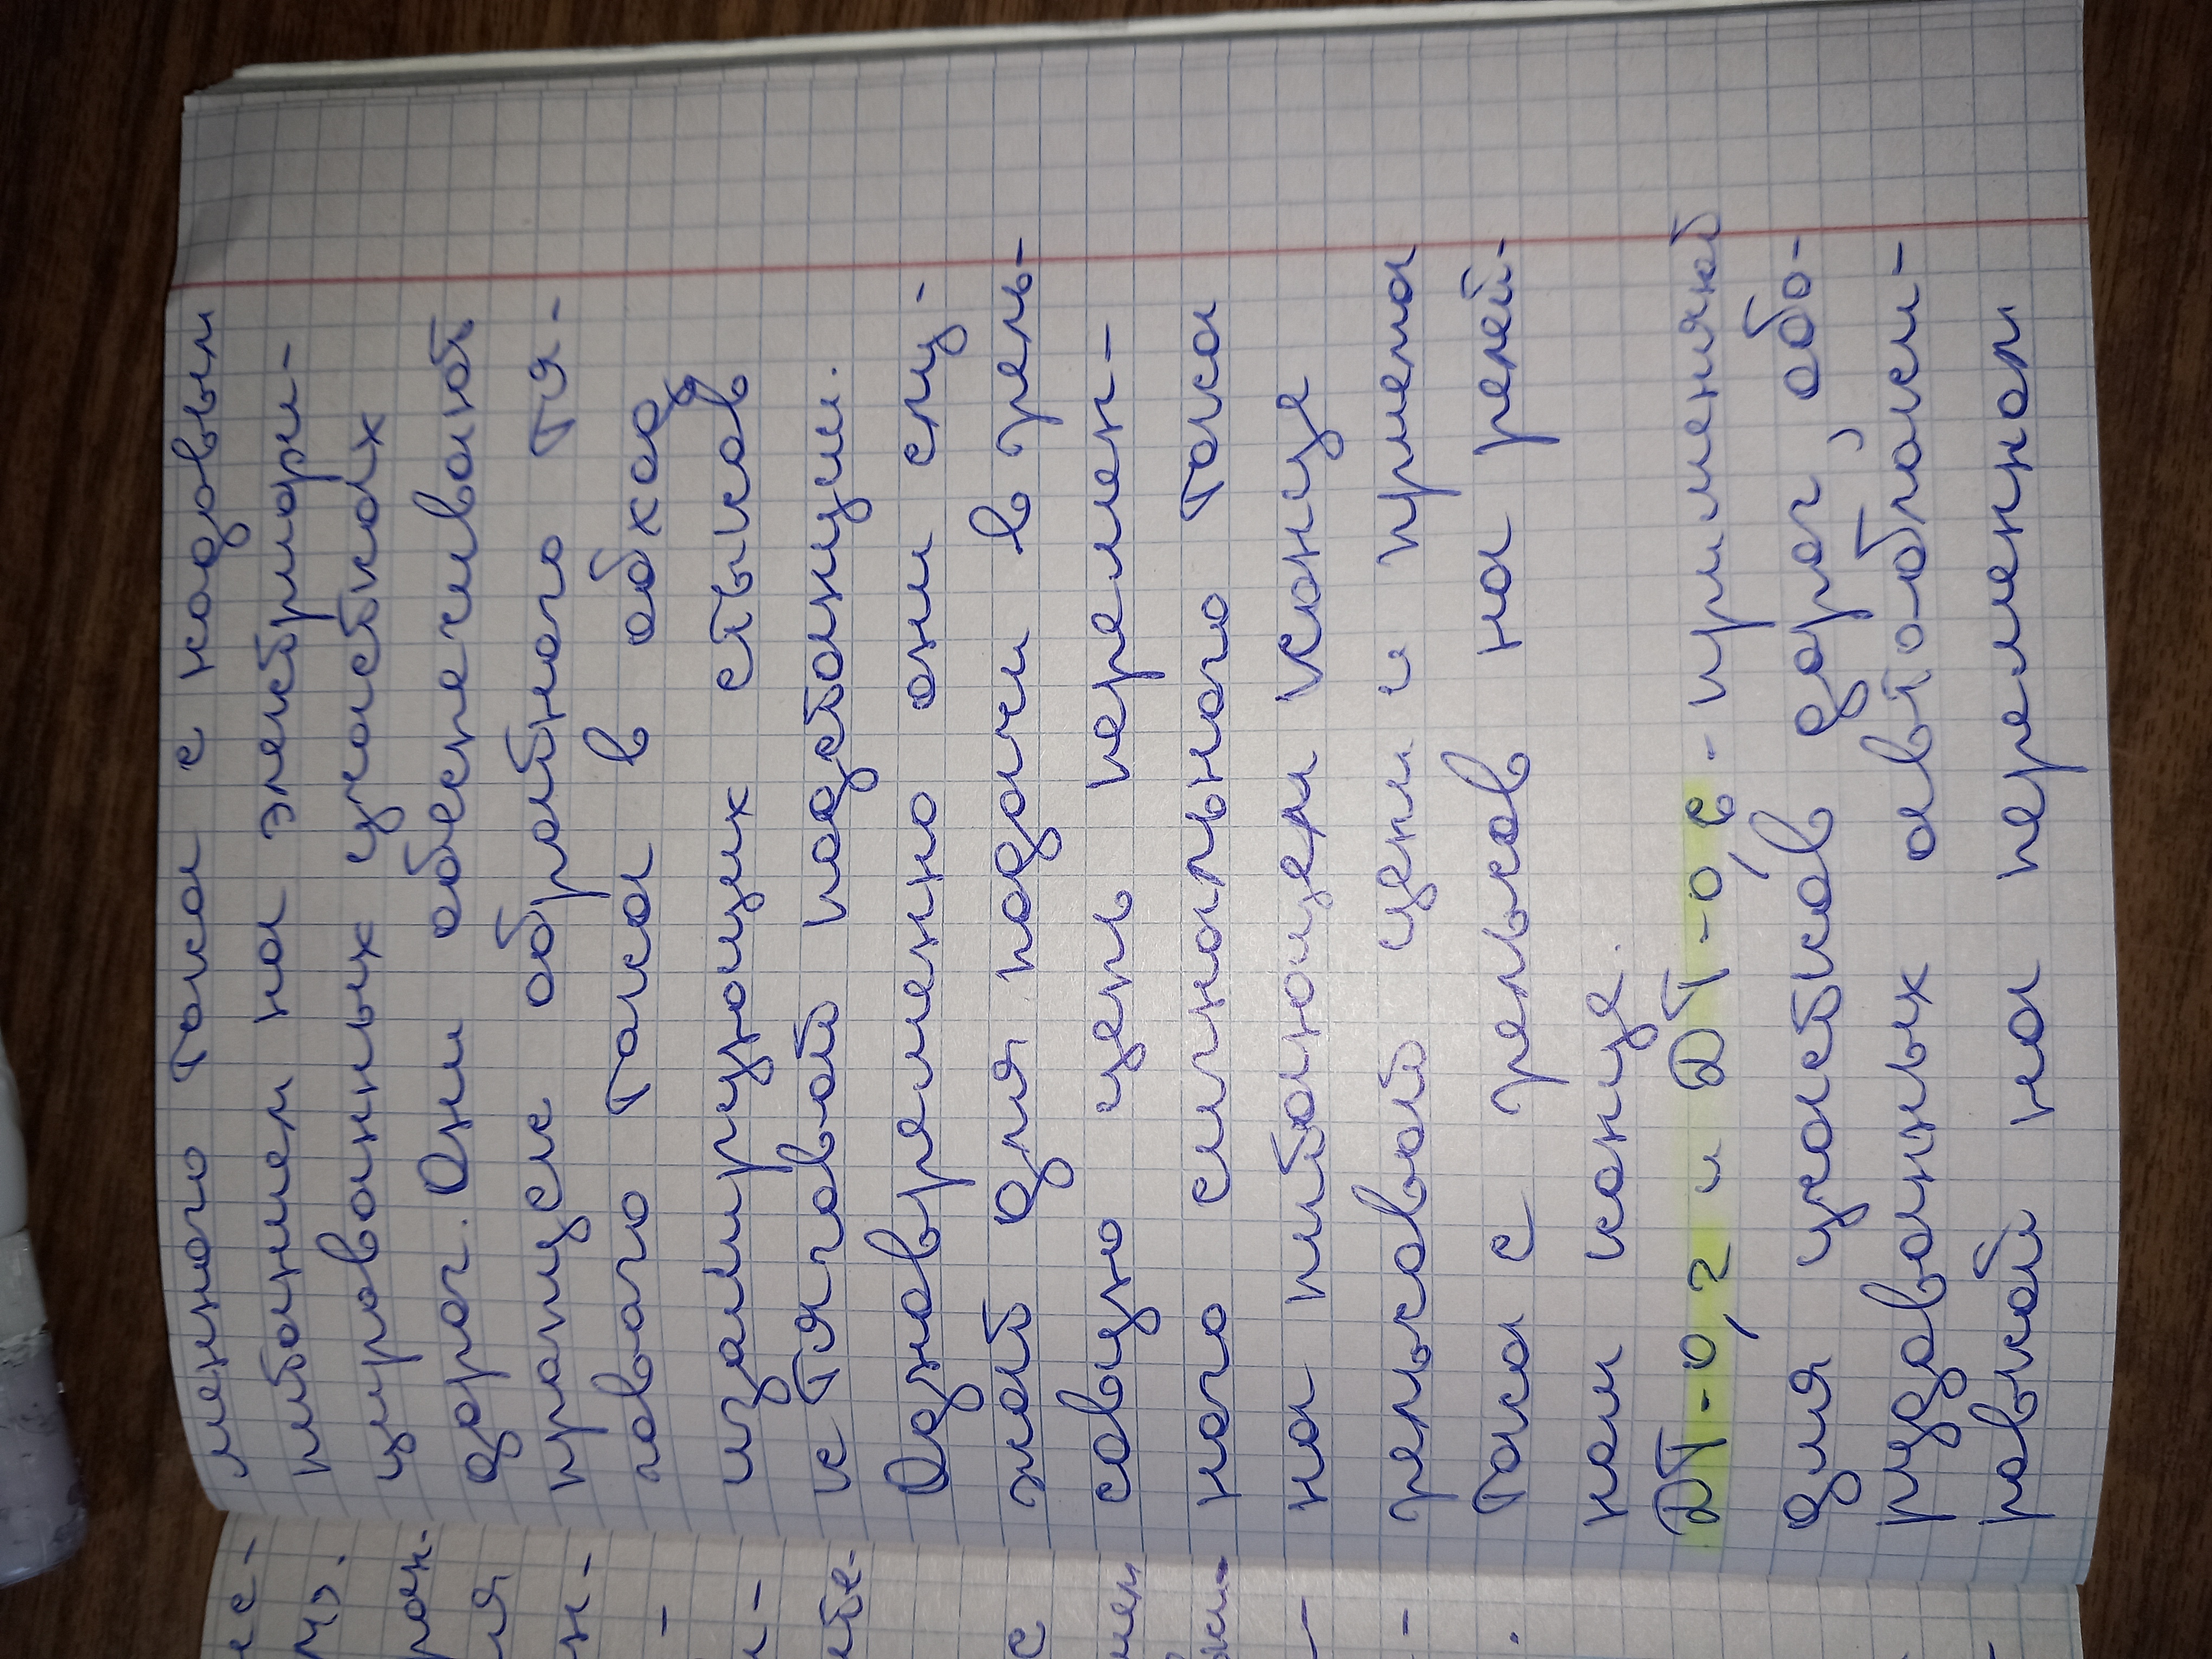 менного тока с кодовым
питанием на электрифи-
цированных участках
дорог. Они обеспечивают
пропуск обратного тя-
гового тока в обход
изолирующих стыков
к тяговой подстанции.
Одновременно они слу-
жат для подачи в рель-
совую цепь перемен-
ного сигнального тока
на питающем конце
рельсовой цепи и приема
тока с рельсов на релей-
ном конце.
ДТ-0,2 и ДТ-0,6 - применяют
для участков дорог, обо-
рудованных автоблоки-
ровкой на переменном